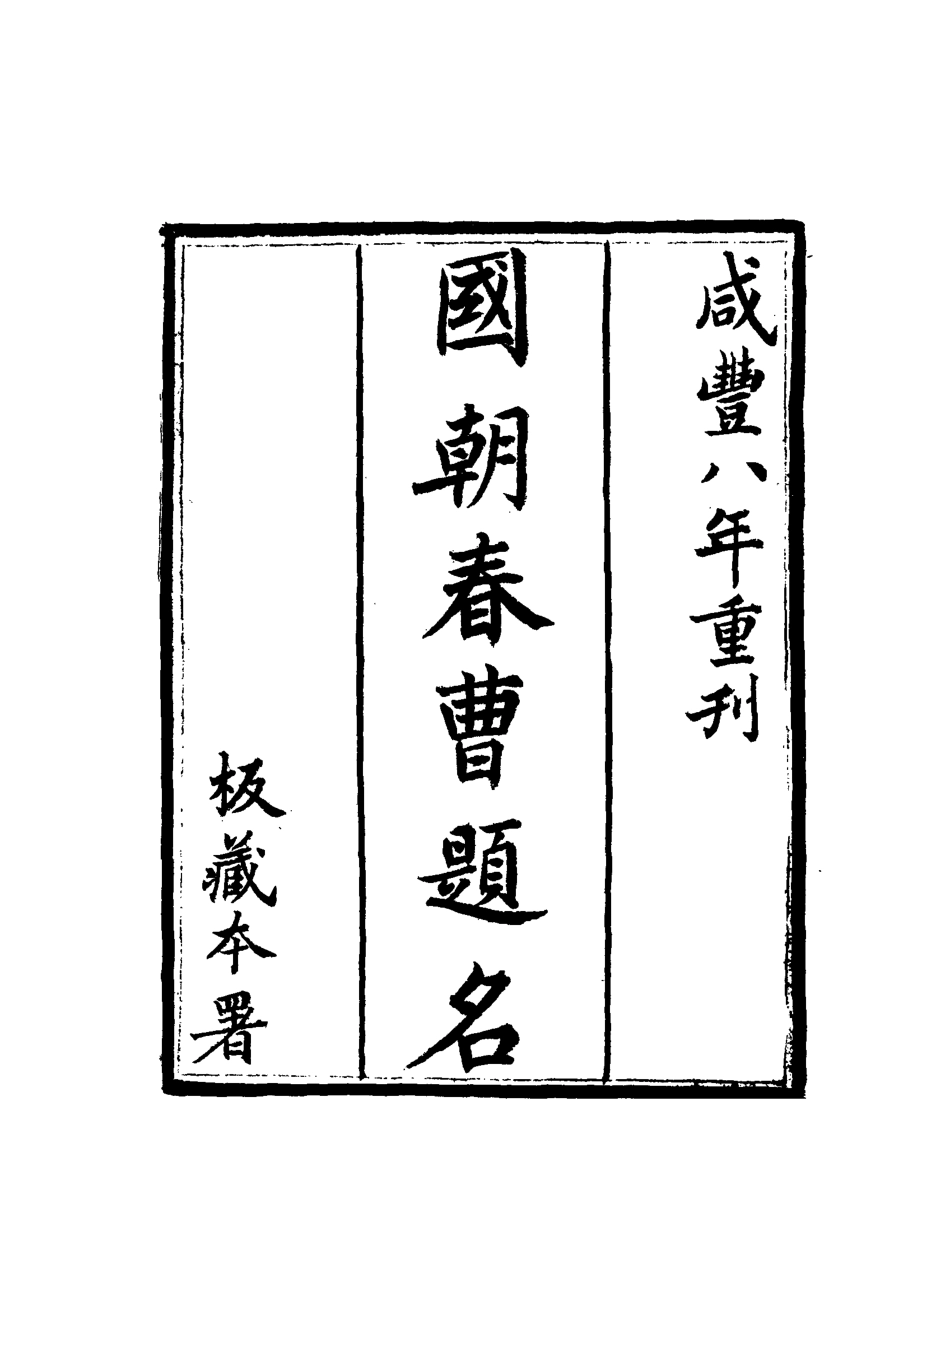 咸豐八年重刊
國朝春曹題名
板藏本署